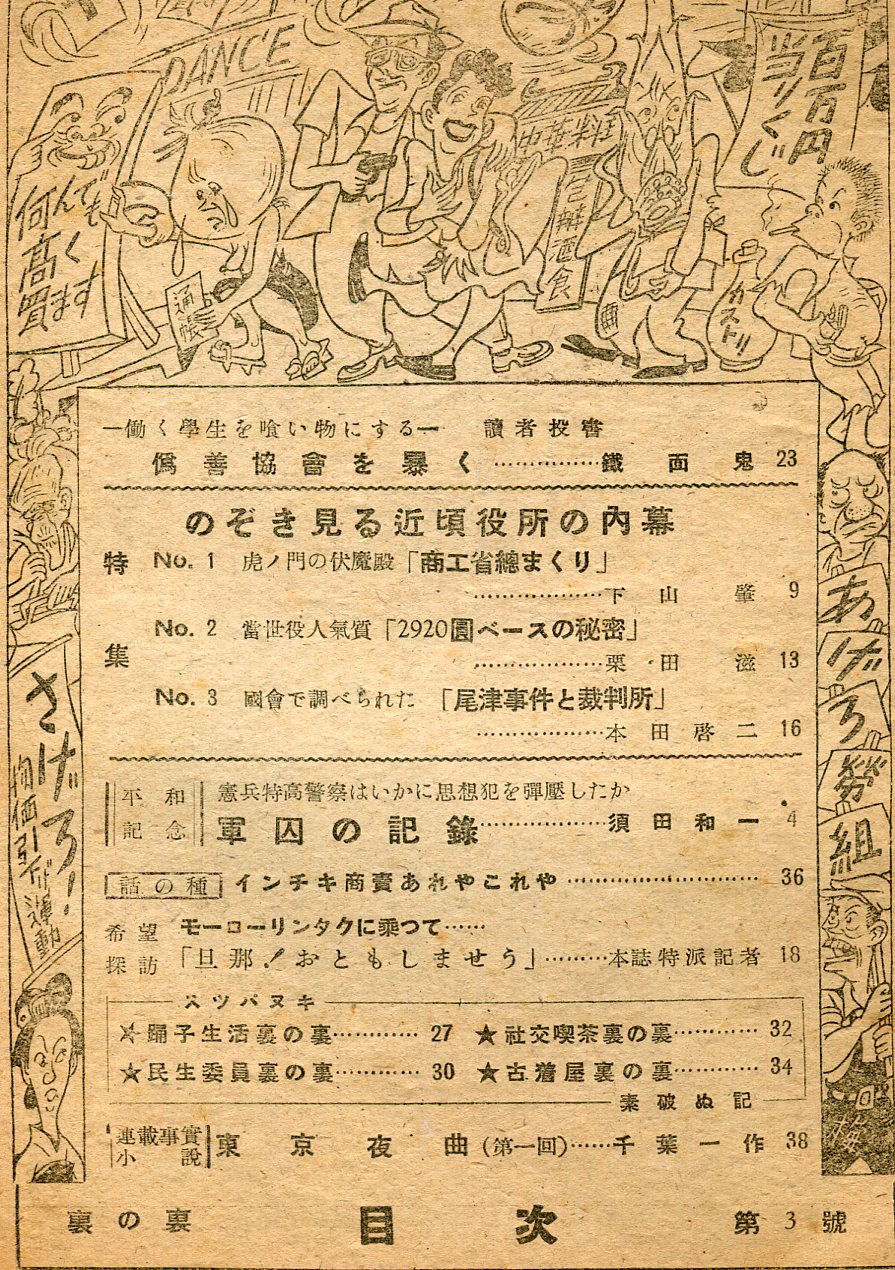 DANCE
何んでも
高く
買ます
通帳
中華料理
酒食
百万円
当りくじ
カストリ
―働く學生を喰い物にする― 讀者投書
僞善協會を暴く……………鐵面鬼 23
のぞき見る近頃役所の內幕
特集
No. 1 虎ノ門の伏魔殿「商工省總まくり」
………………下山肇 9
No. 2 當世役人氣質「2920圓ベースの秘密」
………………栗田滋 13
No. 3 國會で調べられた「尾津事件と裁判所」
………………本田啓二 16
平和記念
憲兵特高警察はいかに思想犯を彈壓したか
軍囚の記錄………………須田和一 4
話の種 インチキ商賣あれやこれや……………………… 36
希望探訪
モーローリンタクに乘つて……
「旦那!おともしませう」………本誌特派記者 18
スツパヌキ
★踊子生活裏の裏………… 27
★社交喫茶裏の裏………… 32
★民生委員裏の裏………… 30
★古着屋裏の裏………… 34
素破ぬ記
連載事實小說
東京夜曲(第一回)……千葉一作 38
さげろ!
物価引下げ運動
あげろ
勞組
裏の裏 目次 第3號